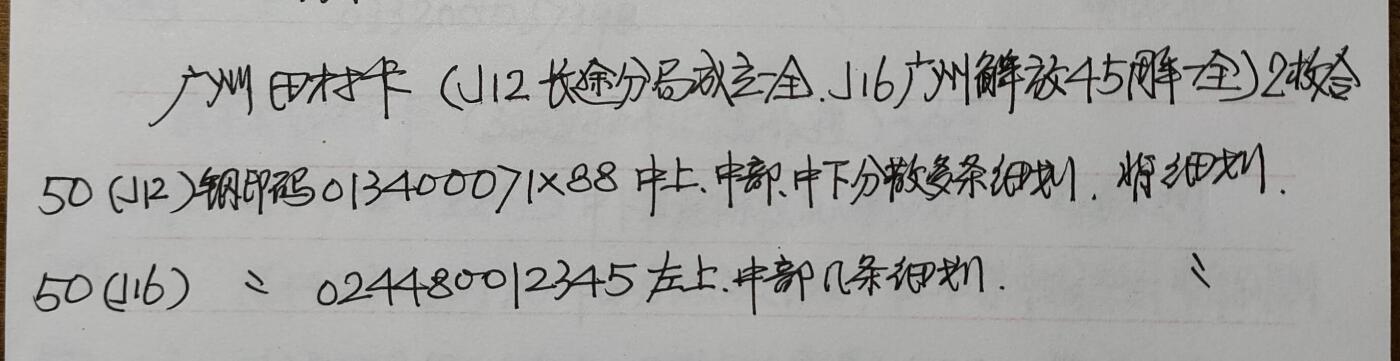 广州田村卡(J12长途分局成立一全.J16广州解放45周年一全)2枚合
50(J12)钢印码013400071X88中上.中部.中下分散多条细划.背细划.
50(J16) 〃 024480012345左上.中部几条细划. 〃